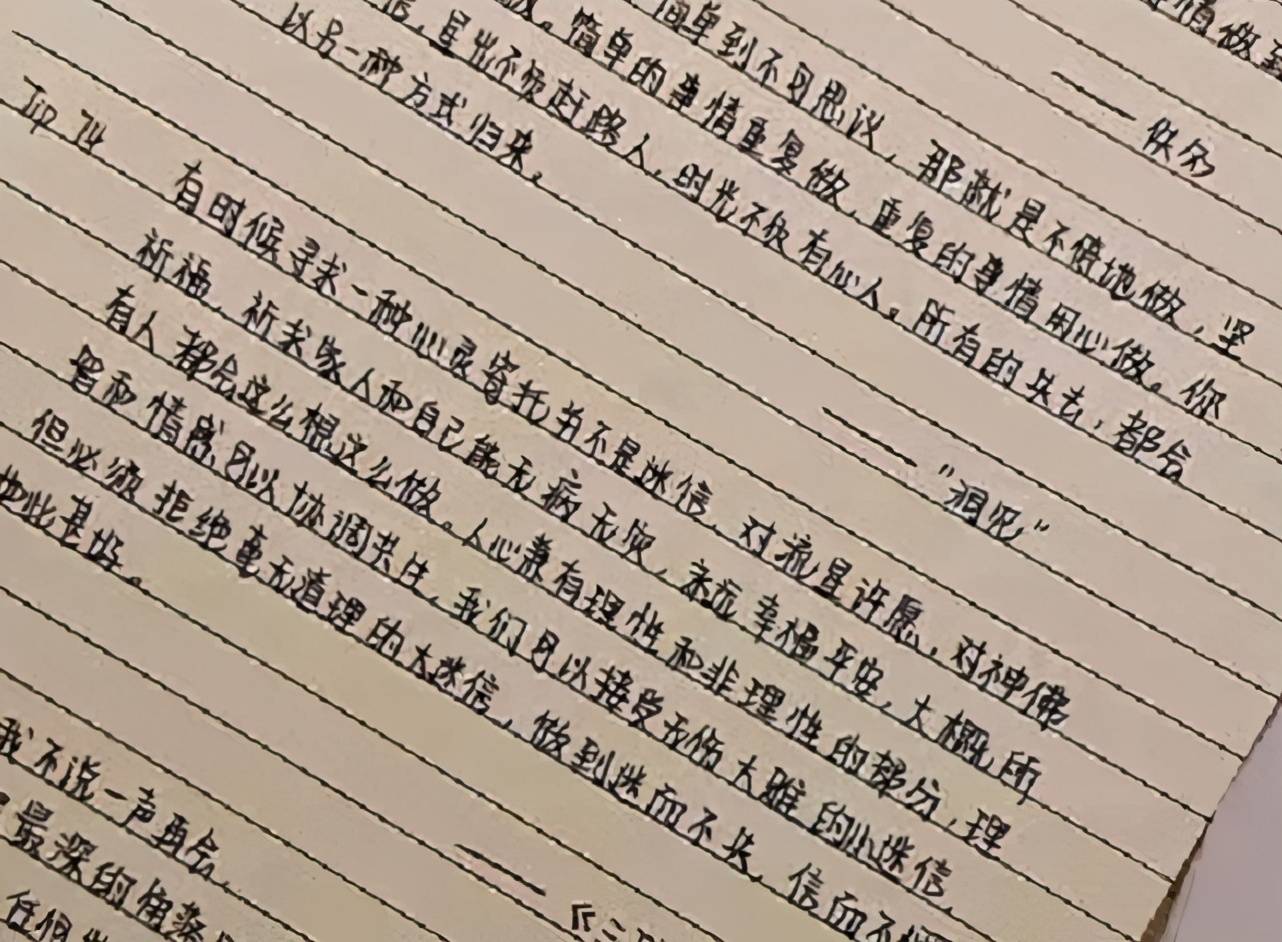 情做到
—— 佚名
简单到不可思议，那就是不停地做，坚
简单的事情重复做，重复的事情用心做。你
信，星出不负赶路人，时光不负有心人。所有的失去，都会
以另一种方式归来。
—— "洞见"
Tip 74
有时候寻求一种心灵寄托并不是迷信，对流星许愿，对神佛
祈福，祈求家人和自己能无病无灾，永远幸福平安，大概所
有人都会这么想这么做。人心兼有理性和非理性的部分，理
智和情感可以协调共往，我们可以接受无伤大雅的小迷信，
但必须拒绝毫无道理的大迷信，做到迷而不失，信而不
如此甚好。
—— 《三
我不说一声再会，
最深的角落
任何